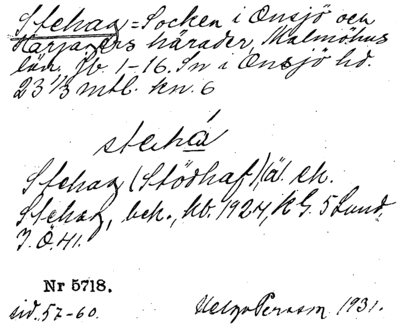 Stehag = Socken i Onsjö och
Harjagers härader, Malmöhus
län. Jb. 1-16. Sn i Onsjö hd.
23 1/3 mtl. kn. 6
stehá
Stehag (Stödhaf) (ä). ek.
Stehag, bek., kb. 1924, k G. 5 Lund.
J. Ö. 41.
Nr 5718.
sid. 57-60.
Helge Persson 1931.